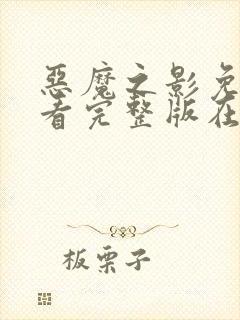 恶魔之影免
看完整版在
板栗子